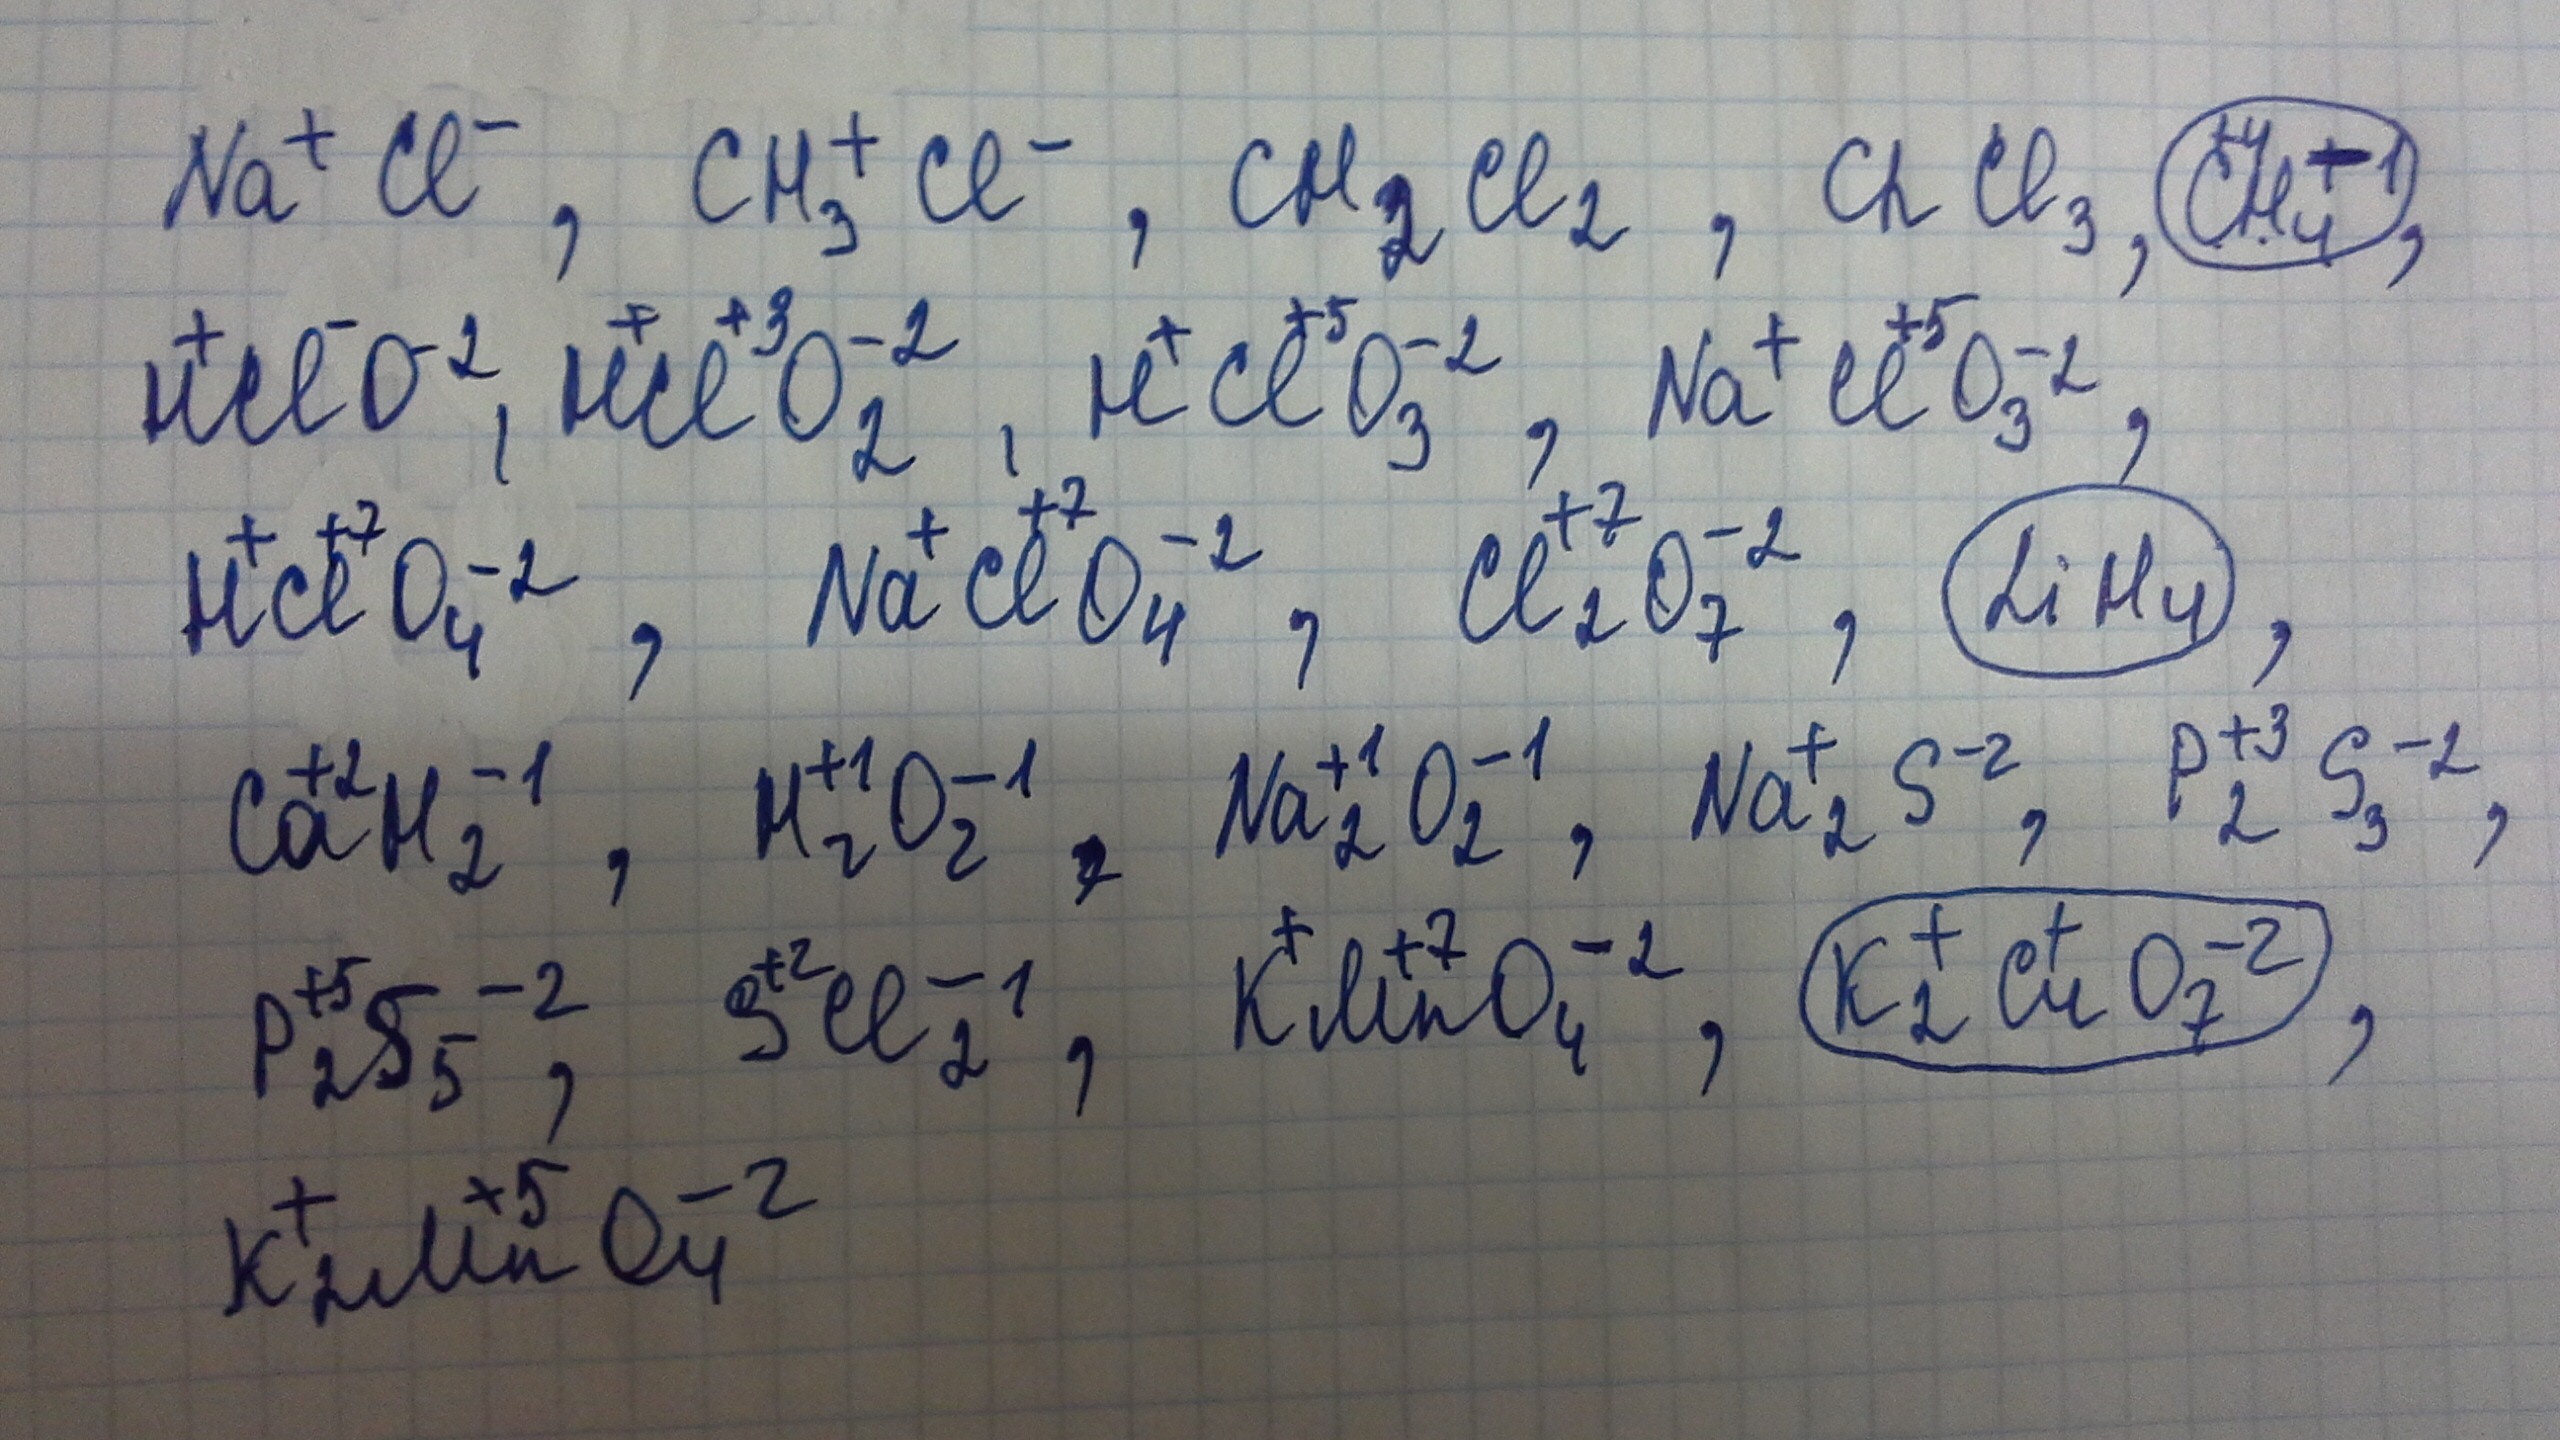 Na⁺Cl⁻, CH₃⁺Cl⁻, CH₂Cl₂, ChCl₃, C⁺⁴H₄⁻¹,
H⁺Cl⁻O⁻², H⁺Cl⁺³O₂⁻², H⁺Cl⁺⁵O₃⁻², Na⁺Cl⁺⁵O₃⁻²,
H⁺Cl⁺⁷O₄⁻², Na⁺Cl⁺⁷O₄⁻², Cl₂⁺⁷O₇⁻², LiH₄,
Ca⁺²H₂⁻¹, H₂⁺¹O₂⁻¹, Na₂⁺¹O₂⁻¹, Na₂⁺S⁻², P₂⁺³S₃⁻²,
P₂⁺⁵S₅⁻², S⁺²Cl₂⁻¹, K⁺Mn⁺⁷O₄⁻², K₂⁺Cu⁺O₇⁻²,
K₂⁺Mn⁺⁵O₄⁻²